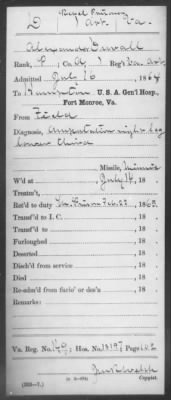 D
Art. Va.
Alexander Duvall
Rank, P; Co. A, 1 Reg't Va. Art.
Admitted July 16, 1864
To Hampton U. S. A Gen'l Hosp.,
Fort Monroe, Va.
From Field
Diagnosis, amputation right leg
lower third
Missile, Minnie
W'd at July 14, 18 .
Treatm't,
Ret'd to duty Feb. 23, 1865.
Transf'd to I. C. , 18 .
Transf'd , 18 .
Furloughed , 18 .
Deserted , 18 .
Disch'd from service , 18 .
Died , 18 .
Re-adm'd from furlo' or des'n , 18 .
Remarks:
Va. Reg. No. 149; Hos. No. 13197 Page 102
Copyist.